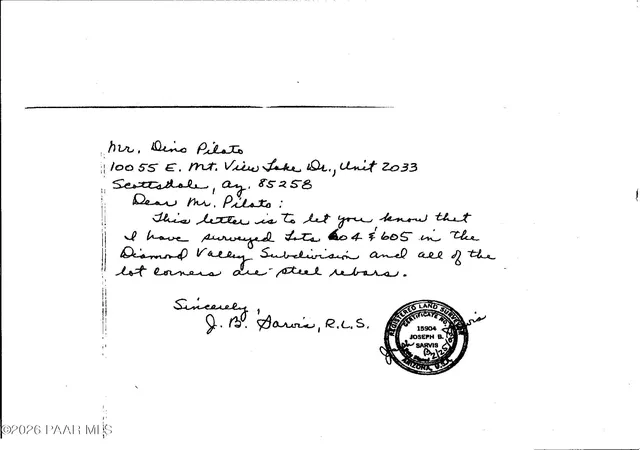 Mr. Dino Pilato
10055 E. Mt. View Lake Dr., Unit 2033
Scottsdale, Az. 85258
Dear Mr. Pilato:
This letter is to let you know that
I have surveyed Lots 604 & 605 in the
Diamond Valley Subdivision and all of the
lot corners are steel rebars.
Sincerely,
J. B. Sarvis, R.L.S.
REGISTERED LAND SURVEYOR
CERTIFICATE NO.
15904
JOSEPH B.
SARVIS
ARIZONA, U.S.A.
©2026 PAAR MLS